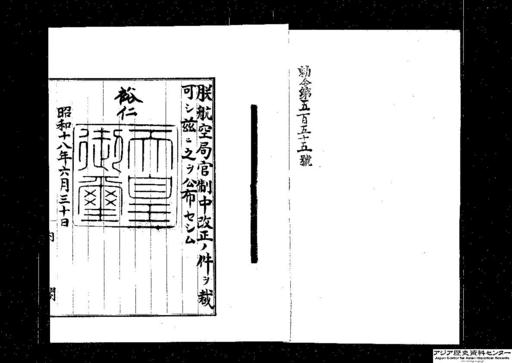 勅令第五百五十五號
朕航空局官制中改正ノ件ヲ裁
可シ茲ニ之ヲ公布セシム
裕仁
天皇
御璽
昭和十八年六月三十日
アジア歴史資料センター
Japan Center for Asian Historical Records